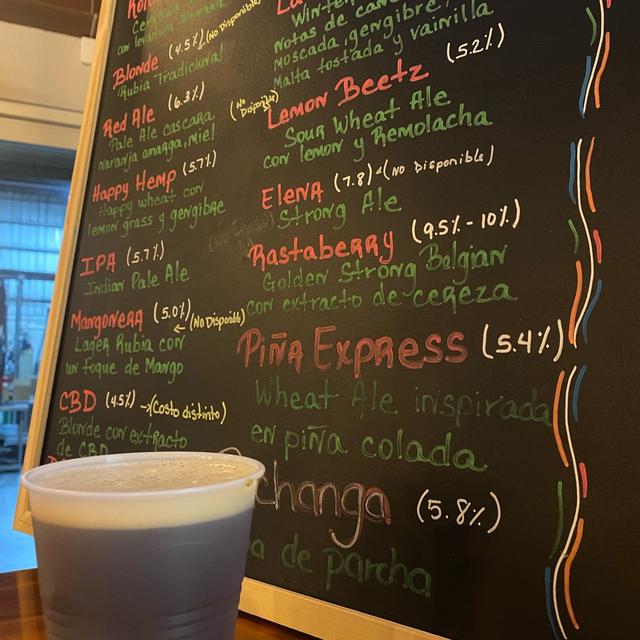 Blonde (4.5%) (No Disponible)
Rubia Tradicional
Red Ale (6.3%)
Pale Ale cascara
naranja amarga, miel
Happy Hemp (5.7%)
Happy wheat con
lemon grass y gengibre
IPA (5.7%)
Indian Pale Ale
Mangonera (5.0%)
(No Disponible)
Lager Rubia con
un toque de Mango
CBD (4.5%) (Costo distinto)
Blonde con extracto
de CBD
notas de
Moscada, gengibre,
Malta tostada y vainilla
(No Disponible)
Lemon Beetz (5.2%)
Sour Wheat Ale
con lemon y Remolacha
Elena (7.8) (No Disponible)
Strong Ale
Rastaberry (9.5% - 10%)
Golden Strong Belgian
con extracto de cereza
Piña Express (5.4%)
Wheat Ale inspirada
en piña colada
changa (5.8%)
a de parcha